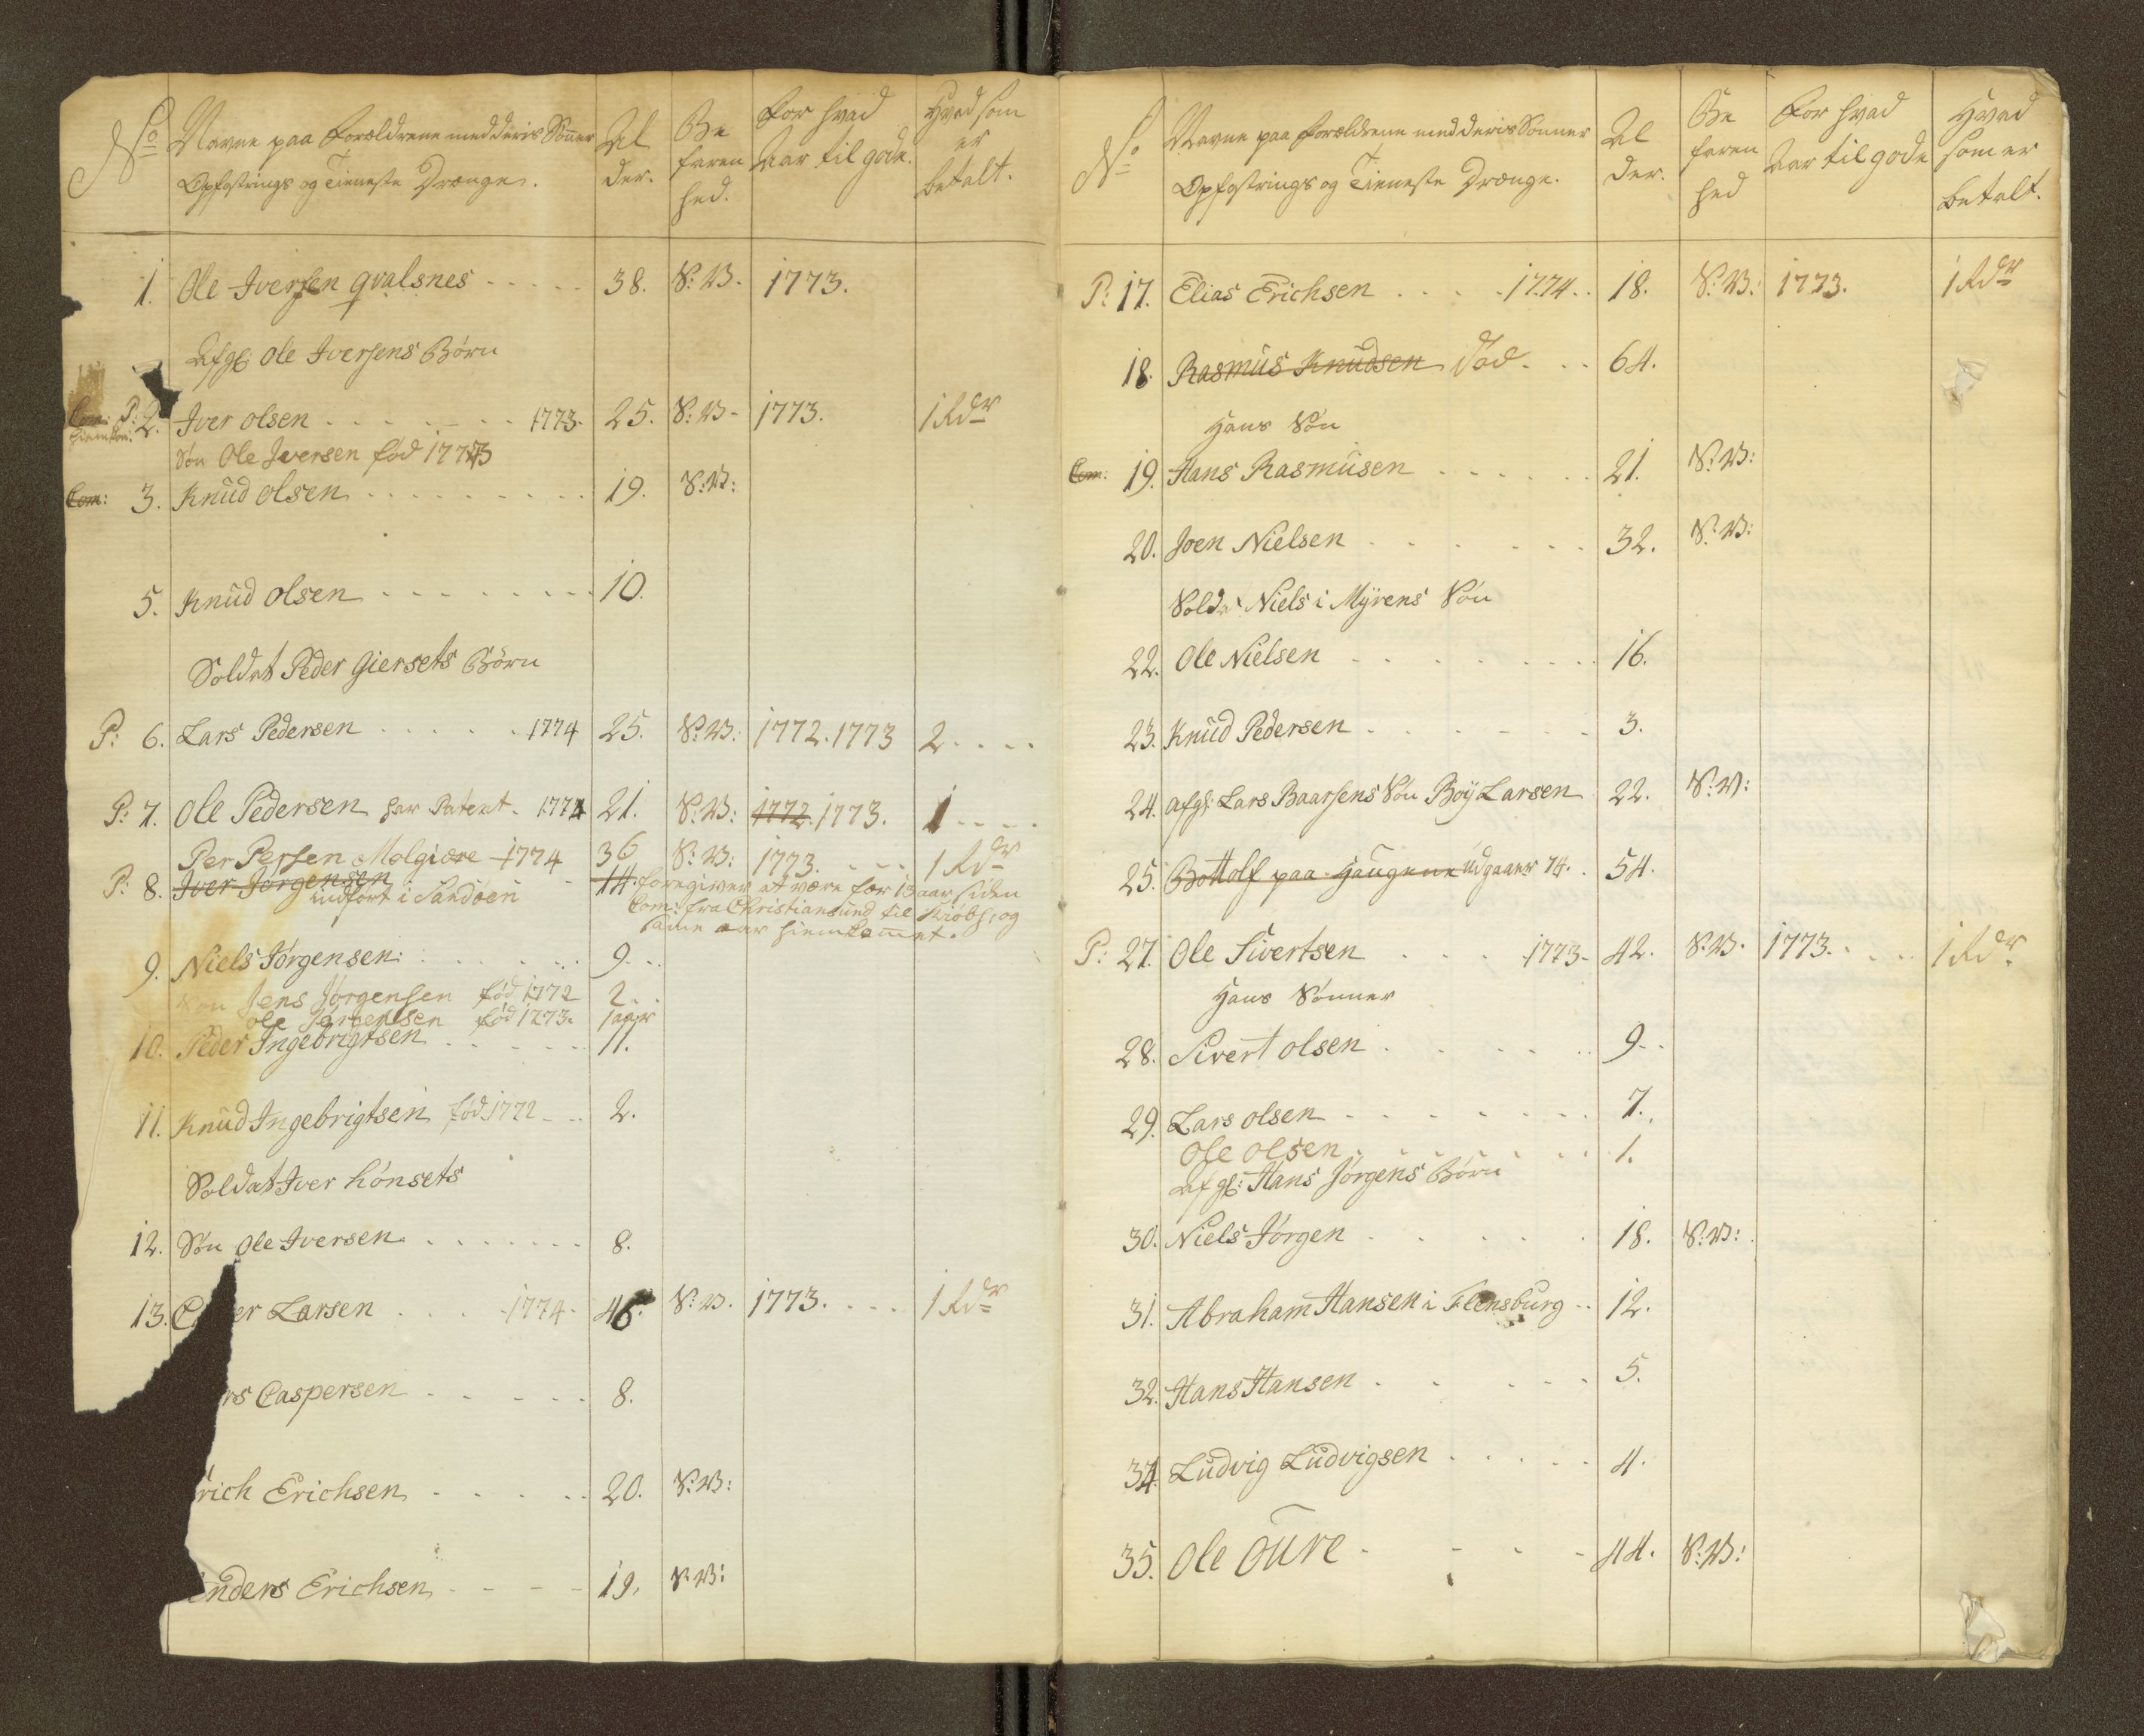 No Navne paa Forældrene med deris Sønner Opfostrings og Tieneste Drænge.
Al der.
Be faren hed.
For hvad Aar til gode.
Hvad som er betalt.
1. Ole Iversen qvalsnes 38. S: B. 1773.
Afg: Ole Iversens Børn
Com: P: 2. Iver olsen 1773. 25. S: B. 1773. 1 Rdr
Søn Ole Iversen fød 1773
Com: 3. Knud olsen 19. S: B:
5. Knud olsen 10.
Soldat Peder Giersets Børn
P: 6. Lars Pedersen 1774 25. S: B: 1772. 1773 2
P: 7. Ole Pedersen har Patent. 1774 21. S: B: 1772. 1773. 1
Per Persen Molgiære 1774 36 S: B: 1773. 1 Rdr
P: 8. Iver Jørgensen 14. foregiver at være for 13 aar siden
indført i Sandøen Com: fra Christiansund til Kiøbh: og
same aar hiemkomet.
9. Niels Jørgensen 9
Søn Jens Jørgensen fød 1772 2
ole Jørgensen fød 1773. 1 aar
10. Peder Ingebrigtsen 11.
11. Knud Ingebrigtsen fød 1772 2.
Soldat Iver hønsets
12. Søn Ole Iversen 8.
13. er Larsen 1774 46. S: B. 1773. 1 Rdr
rs Caspersen 8.
rich Erichsen 20. S: B:
Enders Erichsen 19. S: B:
No Navne paa Forældrene med deris Sønner Opfostrings og Tieneste Drænge.
Al der.
Be faren hed
For hvad Aar til gode
Hvad som er betalt.
P: 17. Elias Erichsen 1774. 18. S: B: 1773. 1 Rdr
18. Rasmus Knudsen død. 64.
Hans Søn
Com: 19. Hans Rasmusen 21. S: B:
20. Joen Nielsen 32. S: B:
Sold: Niels i Myrens Søn
22. Ole Nielsen 16.
23. Knud Pedersen 3.
24. afg: Lars Baarsens Søn Boy Larsen 22. S: B:
25. Bottolf paa Haugene udgaaer 74. 54.
P: 27. Ole Sivertsen 1773. 42. S: B. 1773. 1 Rdr
Hans Sønner
28. Sivert olsen 9.
29. Lars olsen 7.
Ole olsen 1.
Afg: Hans Jørgens Børn
30. Niels Jørgen 18. S: B:
31. Abraham Hansen i Flensburg 12.
32. Hans Hansen 5.
34. Ludvig Ludvigsen 4.
35. Ole Oure 44. S: B: